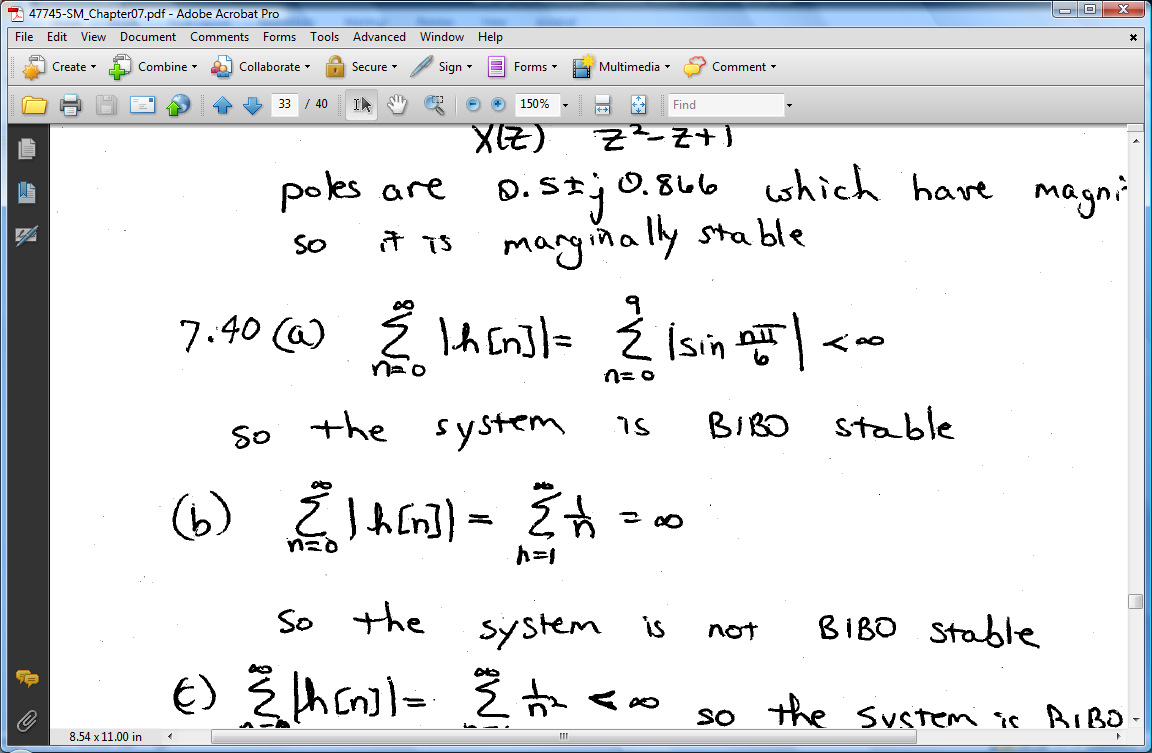 47745-SM_Chapter07.pdf - Adobe Acrobat Pro
File Edit View Document Comments Forms Tools Advanced Window Help
Create Combine Collaborate Secure Sign Forms Multimedia Comment
33 / 40 150% Find
X(z) z²-z+1
poles are 0.5±j0.866 which have magni
so it is marginally stable
7.40 (a) ∞ Σ n=0 |h[n]| = 9 Σ n=0 |sin nπ/6| < ∞
so the system is BIBO stable
(b) ∞ Σ n=0 |h[n]| = ∞ Σ n=1 1/n = ∞
so the system is not BIBO stable
(c) ∞ Σ |h[n]| = ∞ Σ 1/n² < ∞ so the system is BIBO
8.54 x 11.00 in